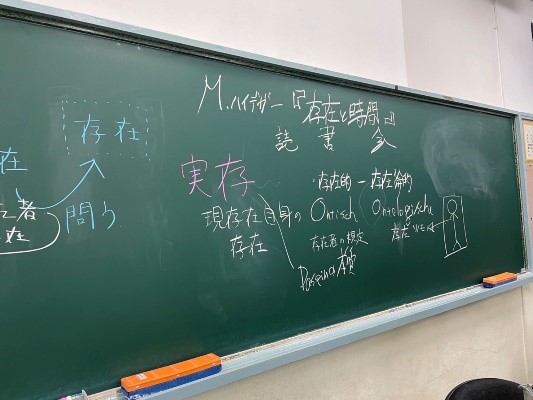 M.ハイデガー『存在と時間』
読書会
存在
在
者
在
問う
実存
現存在自身の
存在
存在的 － 存在論的
Ontisch Ontologisch
存在者の規定
存在
Daseinの本質